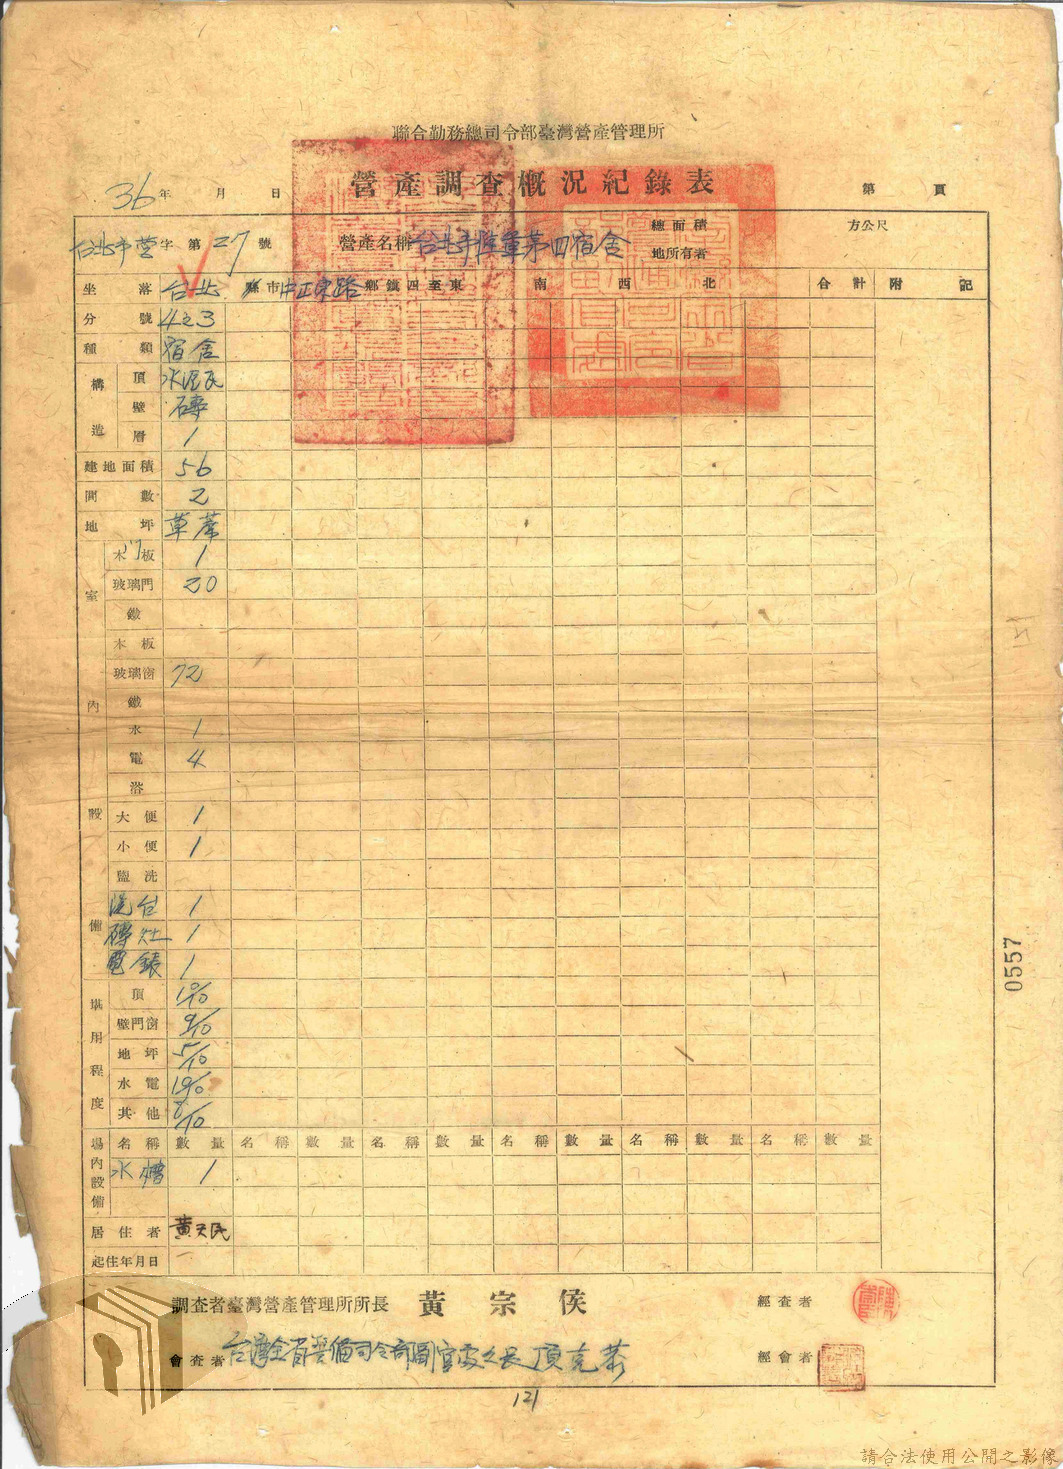 聯合勤務總司令部臺灣營產管理所
營產調查概況紀錄表
36年 月 日
第 頁
台北市營字第27號
營產名稱 台北市 第四宿舍
總面積 方公尺
地所有者
坐落 台北 縣市 中正東路 鄉鎮四至東 南 西 北 合計 附記
分號 4之3
種類 宿舍
構造 頂 水泥瓦
壁 磚
層 1
建地面積 56
間數 2
地坪 草蓆
室內設備
木門板 1
玻璃門 20
鐵
木板
玻璃窗 72
鐵
水 1
電 4
浴
大便 1
小便 1
盥洗
台 1
磚灶 1
電錶 1
堪用程度 頂 10/10
壁門窗 9/10
地坪 5/10
水電 10/10
其他 /10
場內設備 名稱 數量 名稱 數量 名稱 數量 名稱 數量 名稱 數量 名稱 數量
水槽 1
居住者 黃天民
起住年月日
調查者臺灣營產管理所所長 黃宗侯 經查者
會查者 台灣全省警備司令部 項克恭 經會者
121
0557
請合法使用公開之影像